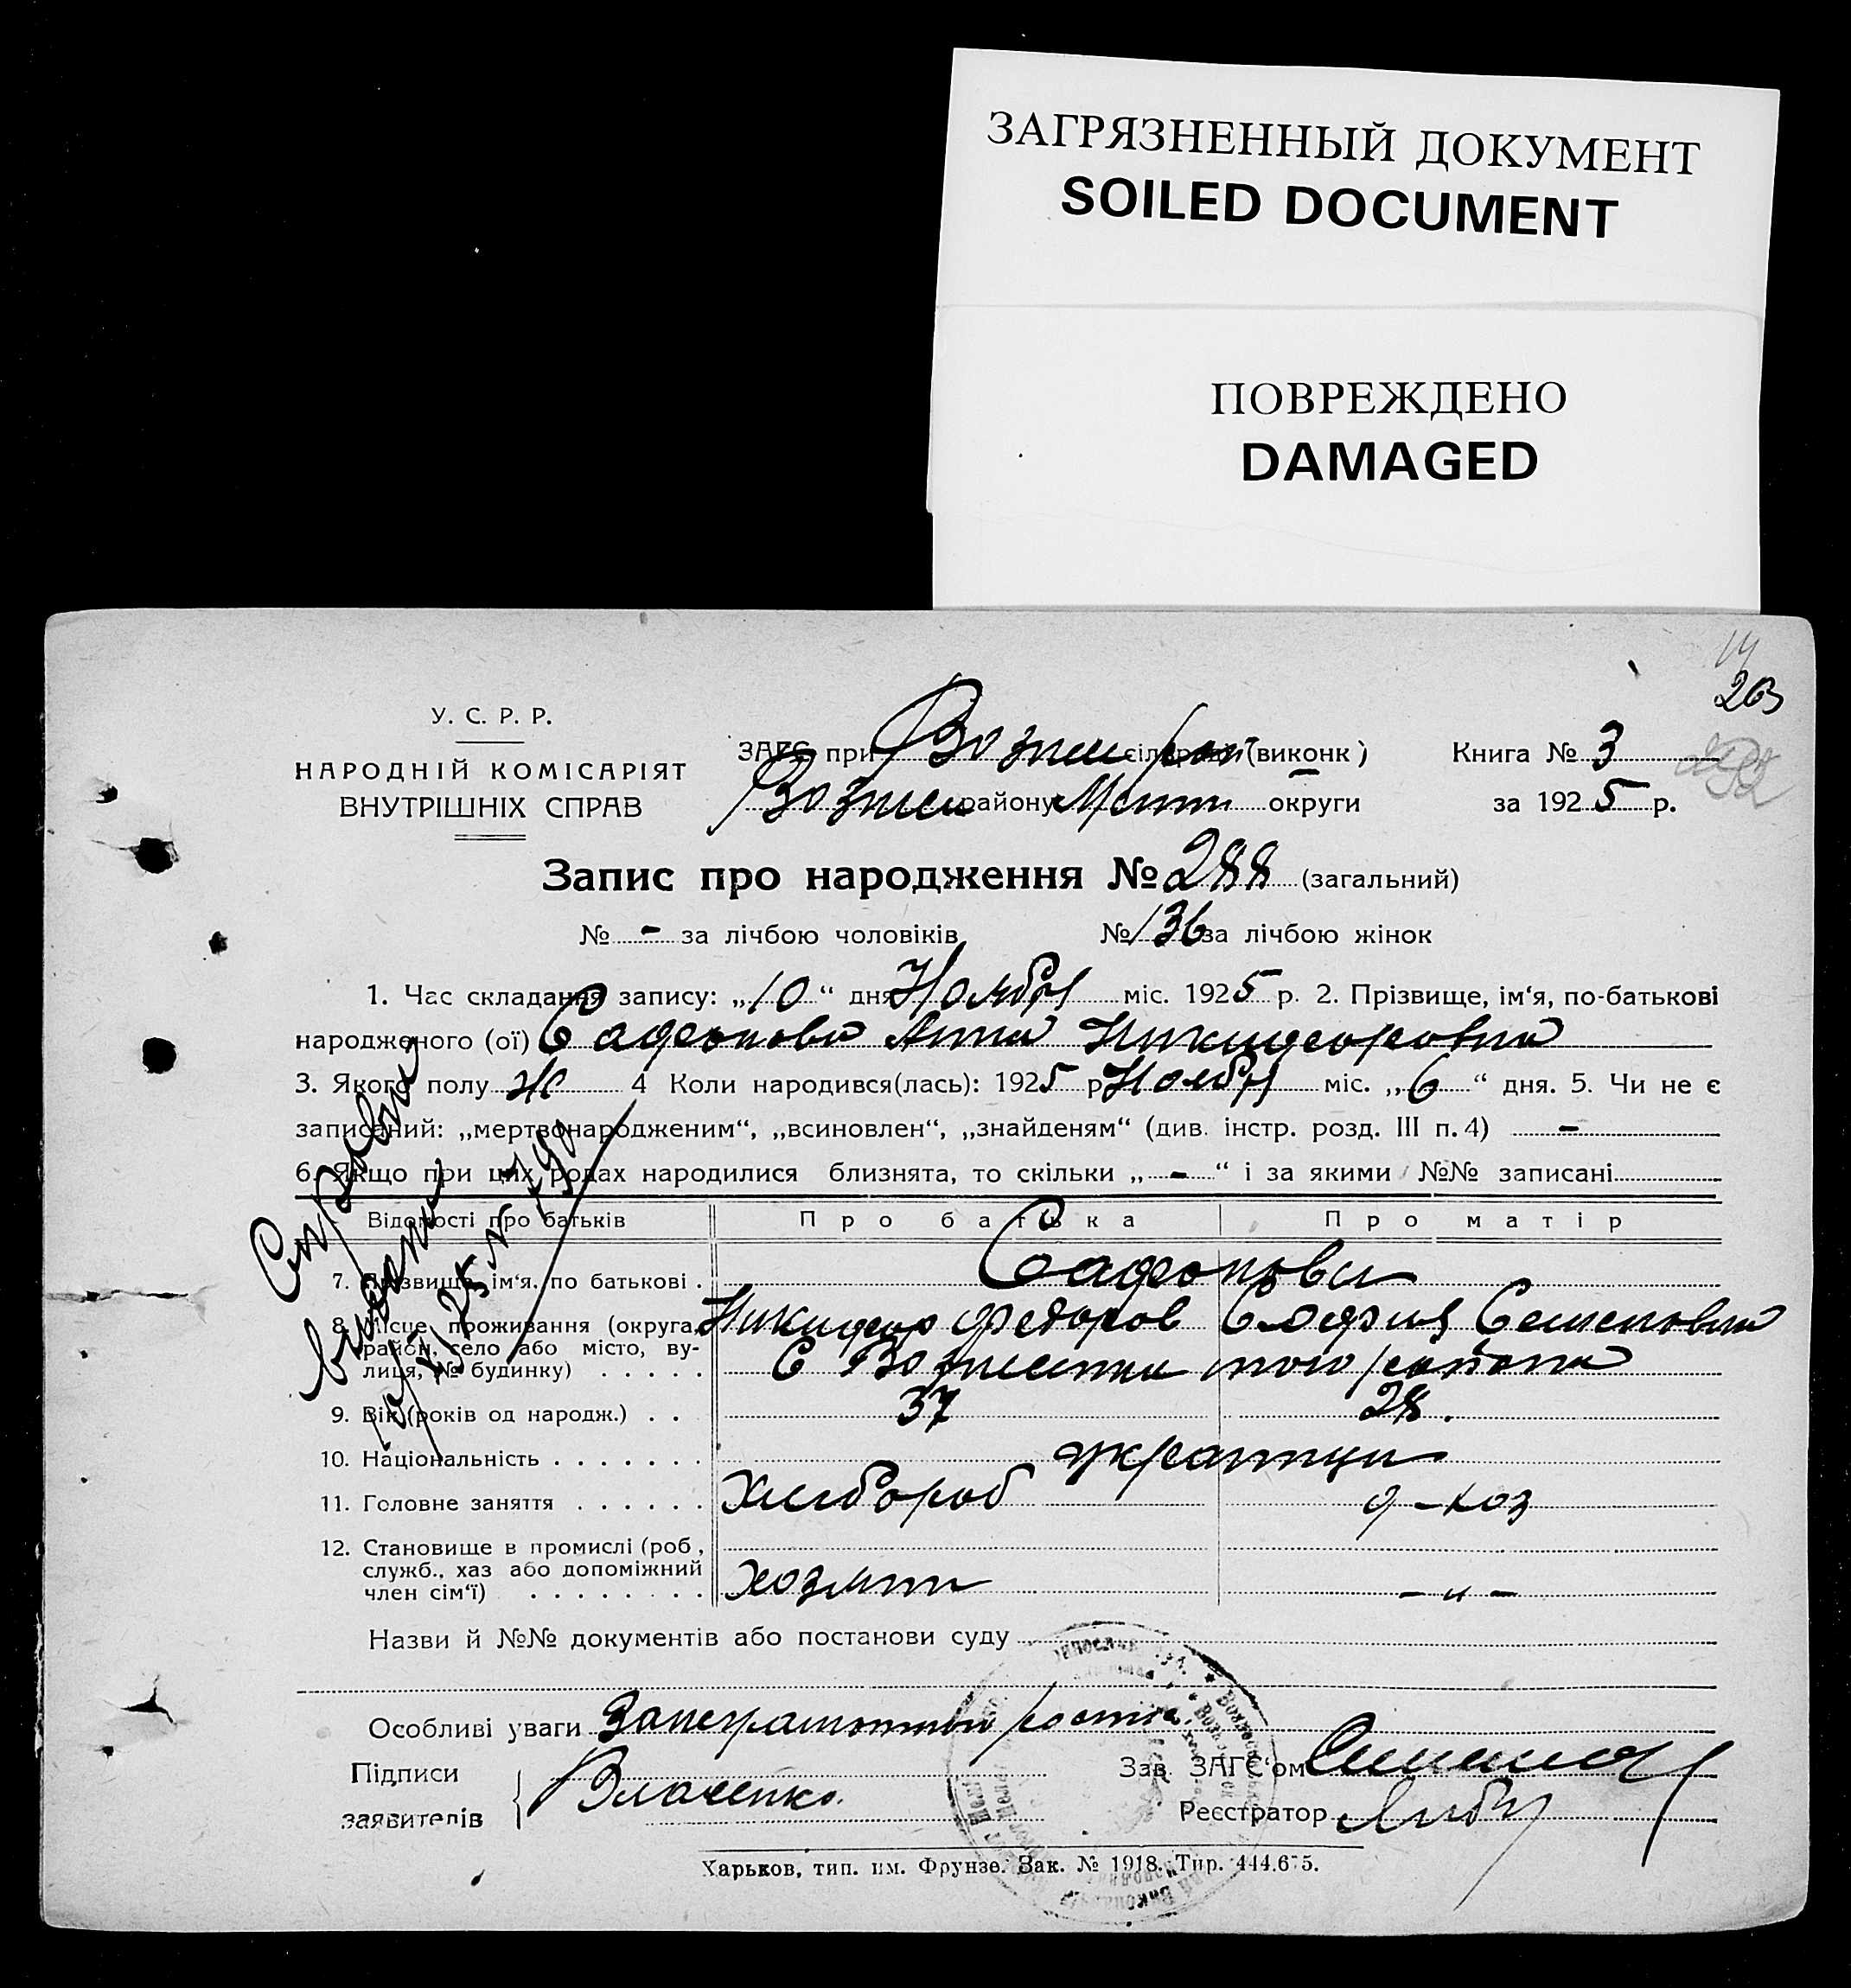 ЗАГРЯЗНЕННЫЙ ДОКУМЕНТ
SOILED DOCUMENT
ПОВРЕЖДЕНО
DAMAGED
14
203
У. С. Р. Р.
НАРОДНІЙ КОМІСАРІЯТ
ВНУТРІШНІХ СПРАВ
ЗАГС при Вознес рай сільраді (виконк) Книга № 3
Вознес району округи за 1925 р.
Запис про народження № 288 (загальний)
№ - за лічбою чоловіків № 136 за лічбою жінок
1. Час складання запису: „10“ дня Ноября міс. 1925 р. 2. Прізвище, ім‘я, по-батькові
народженого (ої) Сафонова Анна Никифоровна
3. Якого полу Ж 4 Коли народився(лась): 1925 р Ноября міс. „6“ дня. 5. Чи не є
записаний: „мертвонародженим“, „всиновлен“, „знайденям“ (див. інстр. розд. III п. 4) -
6. Якщо при цих родах народилися близнята, то скільки „-“ і за якими №№ записані
Справка
выдана
Відомості про батьків Про батька Про матір
7. Прізвище, ім‘я, по батькові . Сафоновы
Никифор Федоров София Семеновна
8. Місце проживання (округа, район, село або місто, ву-
лиця, № будинку) . . . . . С Вознесенка того района
9. Вік (років од народж.) . . 37 28.
10. Національність . . . . . . . украинцы
11. Головне заняття . . . . . . Хлебороб д-хоз
12. Становище в промислі (роб,
служб., хаз або допоміжний
член сім‘ї) . . . . . . . . хозяин - „ -
Назви й №№ документів або постанови суду
Особливі уваги За неграмотных
Підписи Зав. ЗАГС‘ом
заявителів Власенко Реєстратор
Харьков, тип. им. Фрунзе. Зак. № 1918. Тир. 444.675.